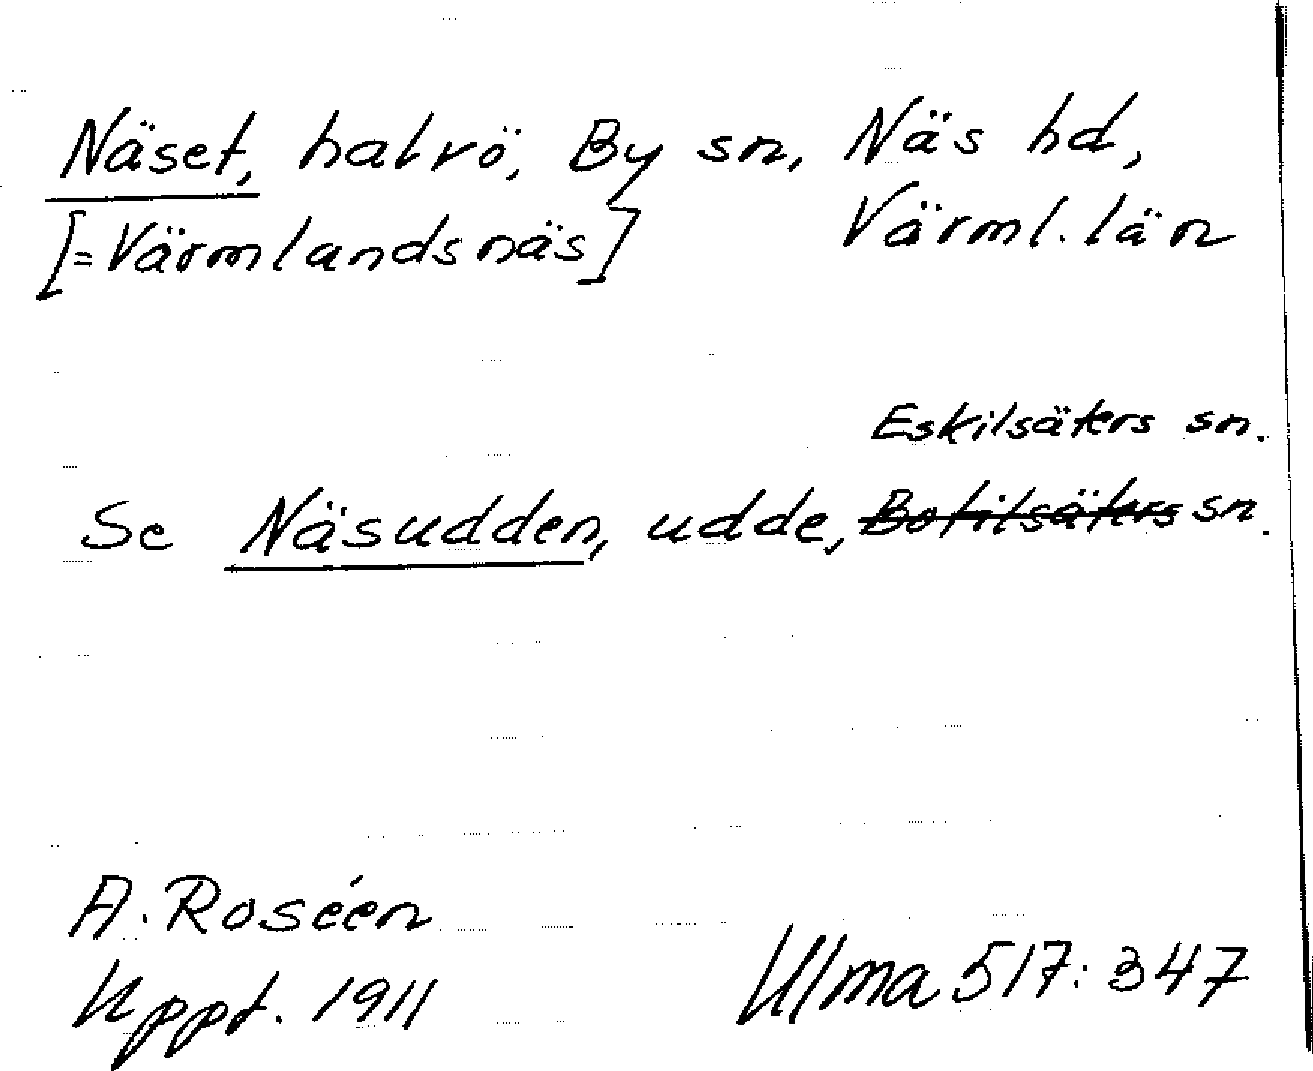 Näset, halvö, By sn, Näs hd,
[=Värmlandsnäs] Värml. län
Eskilsäters sn.
Se Näsudden, udde, Botilsäters sn.
A. Roséen
Uppt. 1911
Ulma 517:347